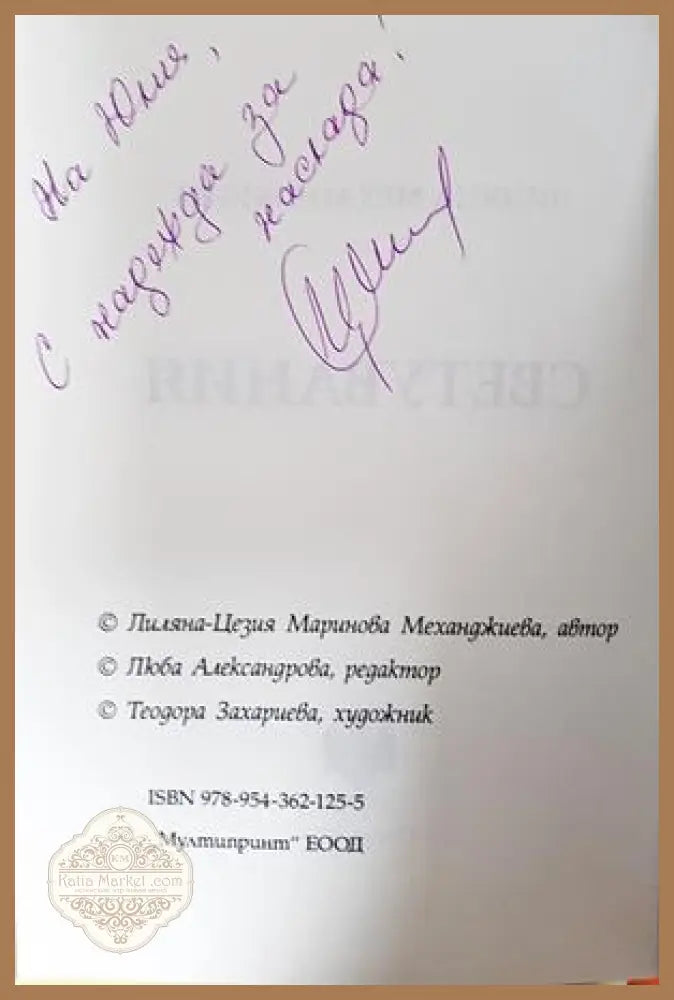 На Юлия,
С надежда за
наслада!
СВЕТУВАНИЯ
© Лиляна-Цезия Маринова Механджиева, автор
© Люба Александрова, редактор
© Теодора Захариева, художник
ISBN 978-954-362-125-5
"Мултипринт" ЕООД
KM
Katia Market .com